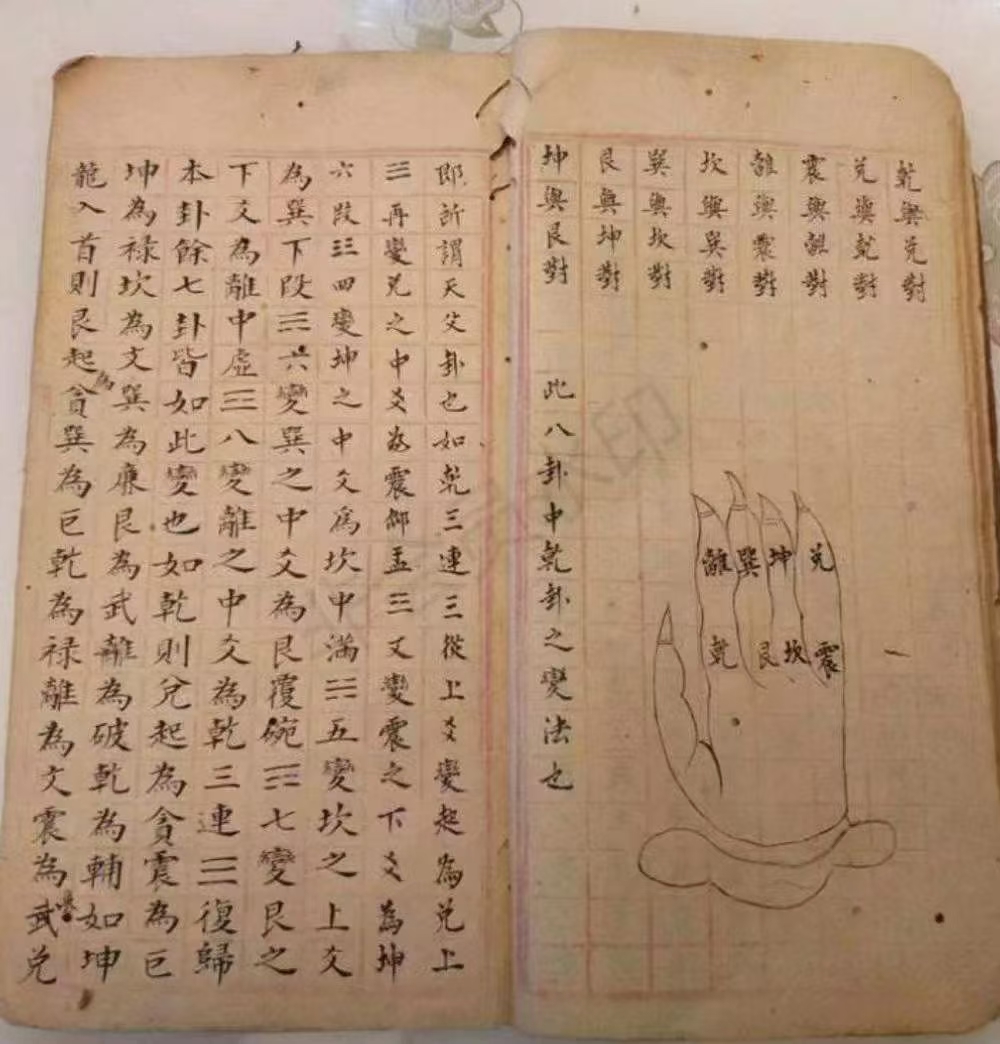 乾與兌對
兌與乾對
震與離對
離與震對
坎與巽對
巽與坎對
艮與坤對
坤與艮對　此八卦中乾卦之變法也
離巽坤兌
乾艮坎震
即所謂天父卦也如乾三連☰從上爻變起為兌上
☱再變兌之中爻為震仰盂☳又變震之下爻為坤
六段☷四變坤之中爻為坎中滿☵五變坎之上爻
為巽下段☴六變巽之中爻為艮覆碗☶七變艮之
下爻為離中虛☲八變離之中爻為乾三連☰復歸
本卦餘七卦皆如此變也如乾則兌起為貪震為巨
坤為祿坎為文巽為廉艮為武離為破乾為輔如坤
龍入首則艮起為貪巽為巨乾為祿離為文震為武兌